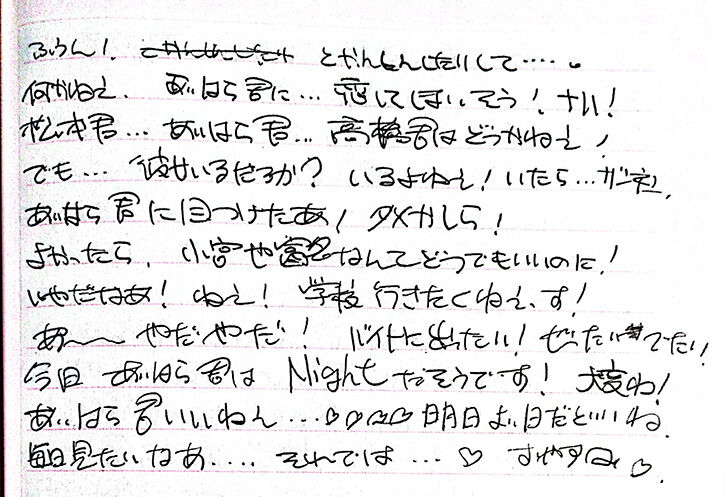 ふぅん! とかんしんしたいして‥‥。
何かねえ、あいはら君に…恋してしまいそう!ナハ!
松本君…あいはら君…高橋君はどうかねえ!
でも… 彼女いるだろか? いるよねえ!いたら…ガーネ
あいはら君に目つけたあ! ダメかしら!
よかったら、小宮也宮名なんてどうでもいいのに!
いやだなあ! ねえ! 学校行きたくねえ、す!
あ〜〜やだやだ! バイトに出ったい! ぜったいでたい!
今日 あいはら君は Nightだそうです! 大変ね!
あいはら君いいねえ…♡♡♡♡明日よい日だといいね
毎日見たいなあ‥‥ それでは…♡ すやすね♡